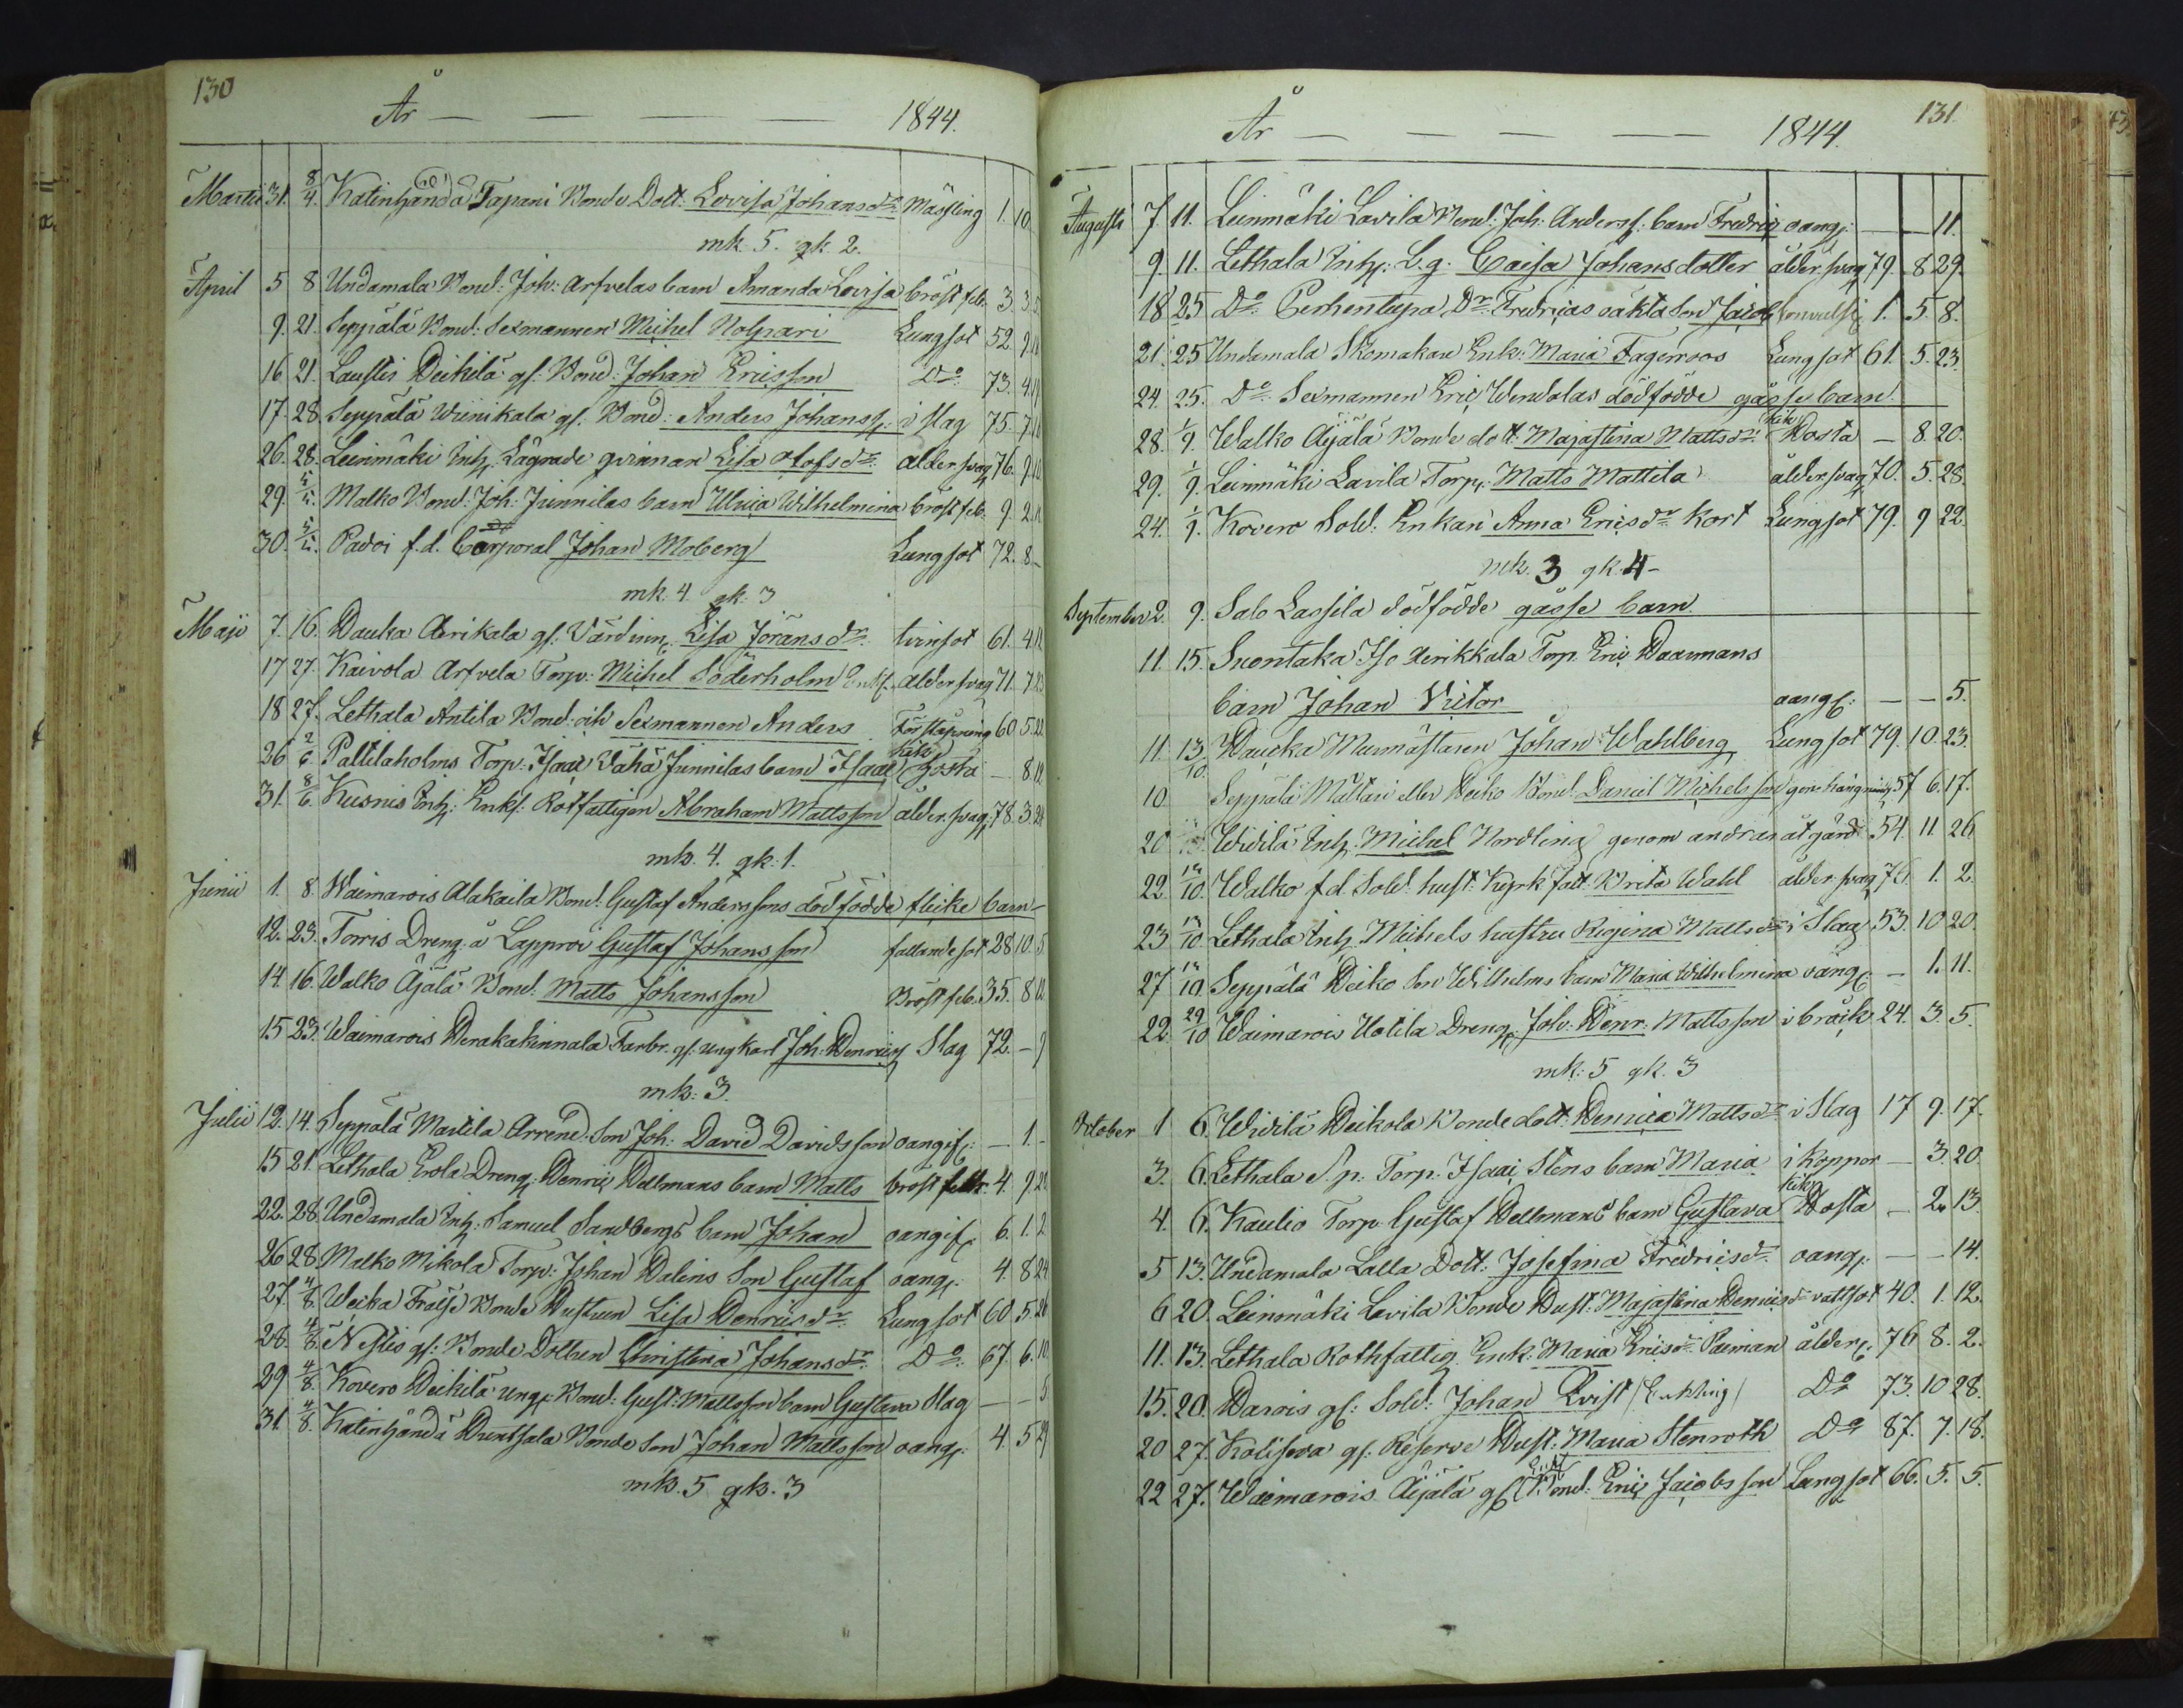 130
År — — — — 1844.
Martii 31. 8/4. Katinhändä Tapani Bonde Dott: Lovisa Johansdr Mässling 1. 10
mk. 5. qk. 2.
April 5 8 Undamala Bond: Joh: Arfvelas barn Amanda Lovisa bröstfeb. 3. 3.
9. 21. Seppälä Bond. Sexmannen Michel Kolpari Lungsot 52. 9.
16 21. Laustis Heikilä gf. Bond: Johan Ericsson Do 73. 4.
17. 28. Seppälä Winikala gf. Bond: Anders Johanss: i Slag 75. 7.
26. 28. Leinmäki Inh. Lägrade qvinnan Lisa Olofsdr ålder svag 76. 9.
29. 5/5. Malko Bond: Joh: Junnilas barn Ulrica Wilhelmina bröstfeb. 9. 2.
30. 5/5. Padoi f.d. Corporal Johan Moberg Lungsot 72. 8
mk. 4 qk. 3
Maji 7. 16. Hauka Aerikala gf. Värdinn. Lisa Jöransdr tvinsot 61. 4.
17 27. Kaivola Arfvela Torp: Michel Söderholm Enkl. ålder svag 71. 7.
18 27. Lethala Antila Bond. och Sexmannen Anders Förstoppning 60 5.
26 2/6. Paltilaholms Torp: Isaac Vähä Junnilas barn Isaac kik hosta — 8
31. 8/6. Kusnis Inh: Enkl. Rotfattigen Abraham Mattsson ålder. svag 78. 3.
mk. 4. qk. 1.
Junii 1. 8. Waimarois Alakaila Bond. Gustaf Anderssons dödfödde flicke barn —
12. 23. Torris Dreng. å Lapproi Gustaf Johansson fallandesot 28 10. 5
14. 16. Walko Äjälä Bond. Matts Johansson Bröstfeb. 35. 8
15 23. Waimarois Herakakinnala Farbr. gf. ungkarl Joh: Henrics Slag 72. —
mk: 3.
Julii 12. 14. Seppälä Martila Arrend. Son Joh: David Davidsson oangif: — 1.
15 21. Lethala Erola Dreng: Henric Hellmans barn Matts bröstfeb. 4. 9
22. 28. Undamala Inh. Samuel Sandbergs barn Johan oangif. 6. 1. 2
26 28. Malko Mikola Torp: Johan Dalins Son Gustaf oang. 4. 8 24
27. 4/8. Weika Fräisi Bonde Hustrun Lisa Henricsdr Lungsot 60. 5. 26
28. 4/8. Nestis gf: Bonde Dottren Christina Johansdr Do 67 6. 10
29 4/8. Kovero Heikilä ung: Bond: Gust: Mattsson barn Gustava Slag — — 5
31. 4/8. Katinhändä Huntsala Bonde Son Johan Mattsson oang: 4. 5 29
mk. 5 qk. 3
131.
År — — — — 1844.
Augusti 7. 11. Leinmäki Lavila Bond: Joh. Anderss: barn Fredric oang: — — 11.
9. 11. Lethala Inh: L.g. Caisa Johansdotter ålder. svag 79. 8 29.
18 25 Do Perhentupa Dr. Fredricas oäkta Son Jacob Convulsi 1. 5. 8.
21. 25 Undamala Skomakare Enk: Maria Fagerroos Lungsot 61. 5. 23.
24. 25. Do Sexmannen Eric Wendalas dödfödde gosse barn.
28. 1/9. Walko Äijälä Bonde dott: Majastina Mattsdr kik Hosta — 8. 20.
29. 1/9. Leinmäki Lavila Torp: Matts Mattila ålder. svag 70. 5. 28.
24. 1/9. Kovero Sold. Enkan Anna Ericsdr Kort Lungsot 79. 9 22.
mk. 3 qk. 4 —
September 2. 9. Salo Lassila dödfödde gosse barn.
11. 15. Suontaka Iso Aerikkala Torp. Eric Haarmans
barn Johan Victor oang: — — 5.
11. 13/10. Hauka Murmästaren Johan Wahlberg Lungsot 79. 10. 23.
10 Seppälä Mälläri eller Heiko Bond. Daniel Michelsson gen. hängning 57 6. 17.
20 Widilä Inh. Michel Nordling genom andras åtgärd 54 11 26
22. 13/10. Walko f.d. Sold. hust: Kyrk fatt. Brita Wahl ålder. svag 76. 1. 2.
23 13/10. Lethala Inh. Michels hustru Regina Mattsdr i Slag 53. 10 20.
27 13/10. Seppälä Heiko Son Wilhelms barn Maria Wilhelmina oang: — 1. 11.
22. 29/10 Waimarois Uotila Dreng. Joh. Henr. Mattsson i bråck 24. 3. 5.
mk: 5 qk. 3
October 1 6. Widilä Heikola Bonde dott: Henrica Mattsdr i Slag 17 9. 17.
3. 6. Lethala S.p. Torp. Isaac Stens barn Maria i Koppor — 3. 20
4. 6. Kaulio Torp. Gustaf Hellmans barn Gustava kik Hosta — 2. 13.
5 13. Undamala Lalla Dott: Josefina Fredricsdr oang: — — 14.
6 20. Leinmäki Lavila Bonde Hust: Majastina Henricsdr vattsot 40. 1. 12.
11. 13. Lethala Rothfattig Enk. Maria Ericsdr Paiman ålder: 76. 8. 2.
15. 20. Harois gf: Sold: Johan Kvist (Enkling) Do 73. 10 28.
20 27. Kolisova gf. Reserve Hust: Maria Stenroth Do 87. 7. 18.
22 27. Waimarois Äijälä gf. Bond: Eric Jacobsson Lungsot 66. 5. 5.